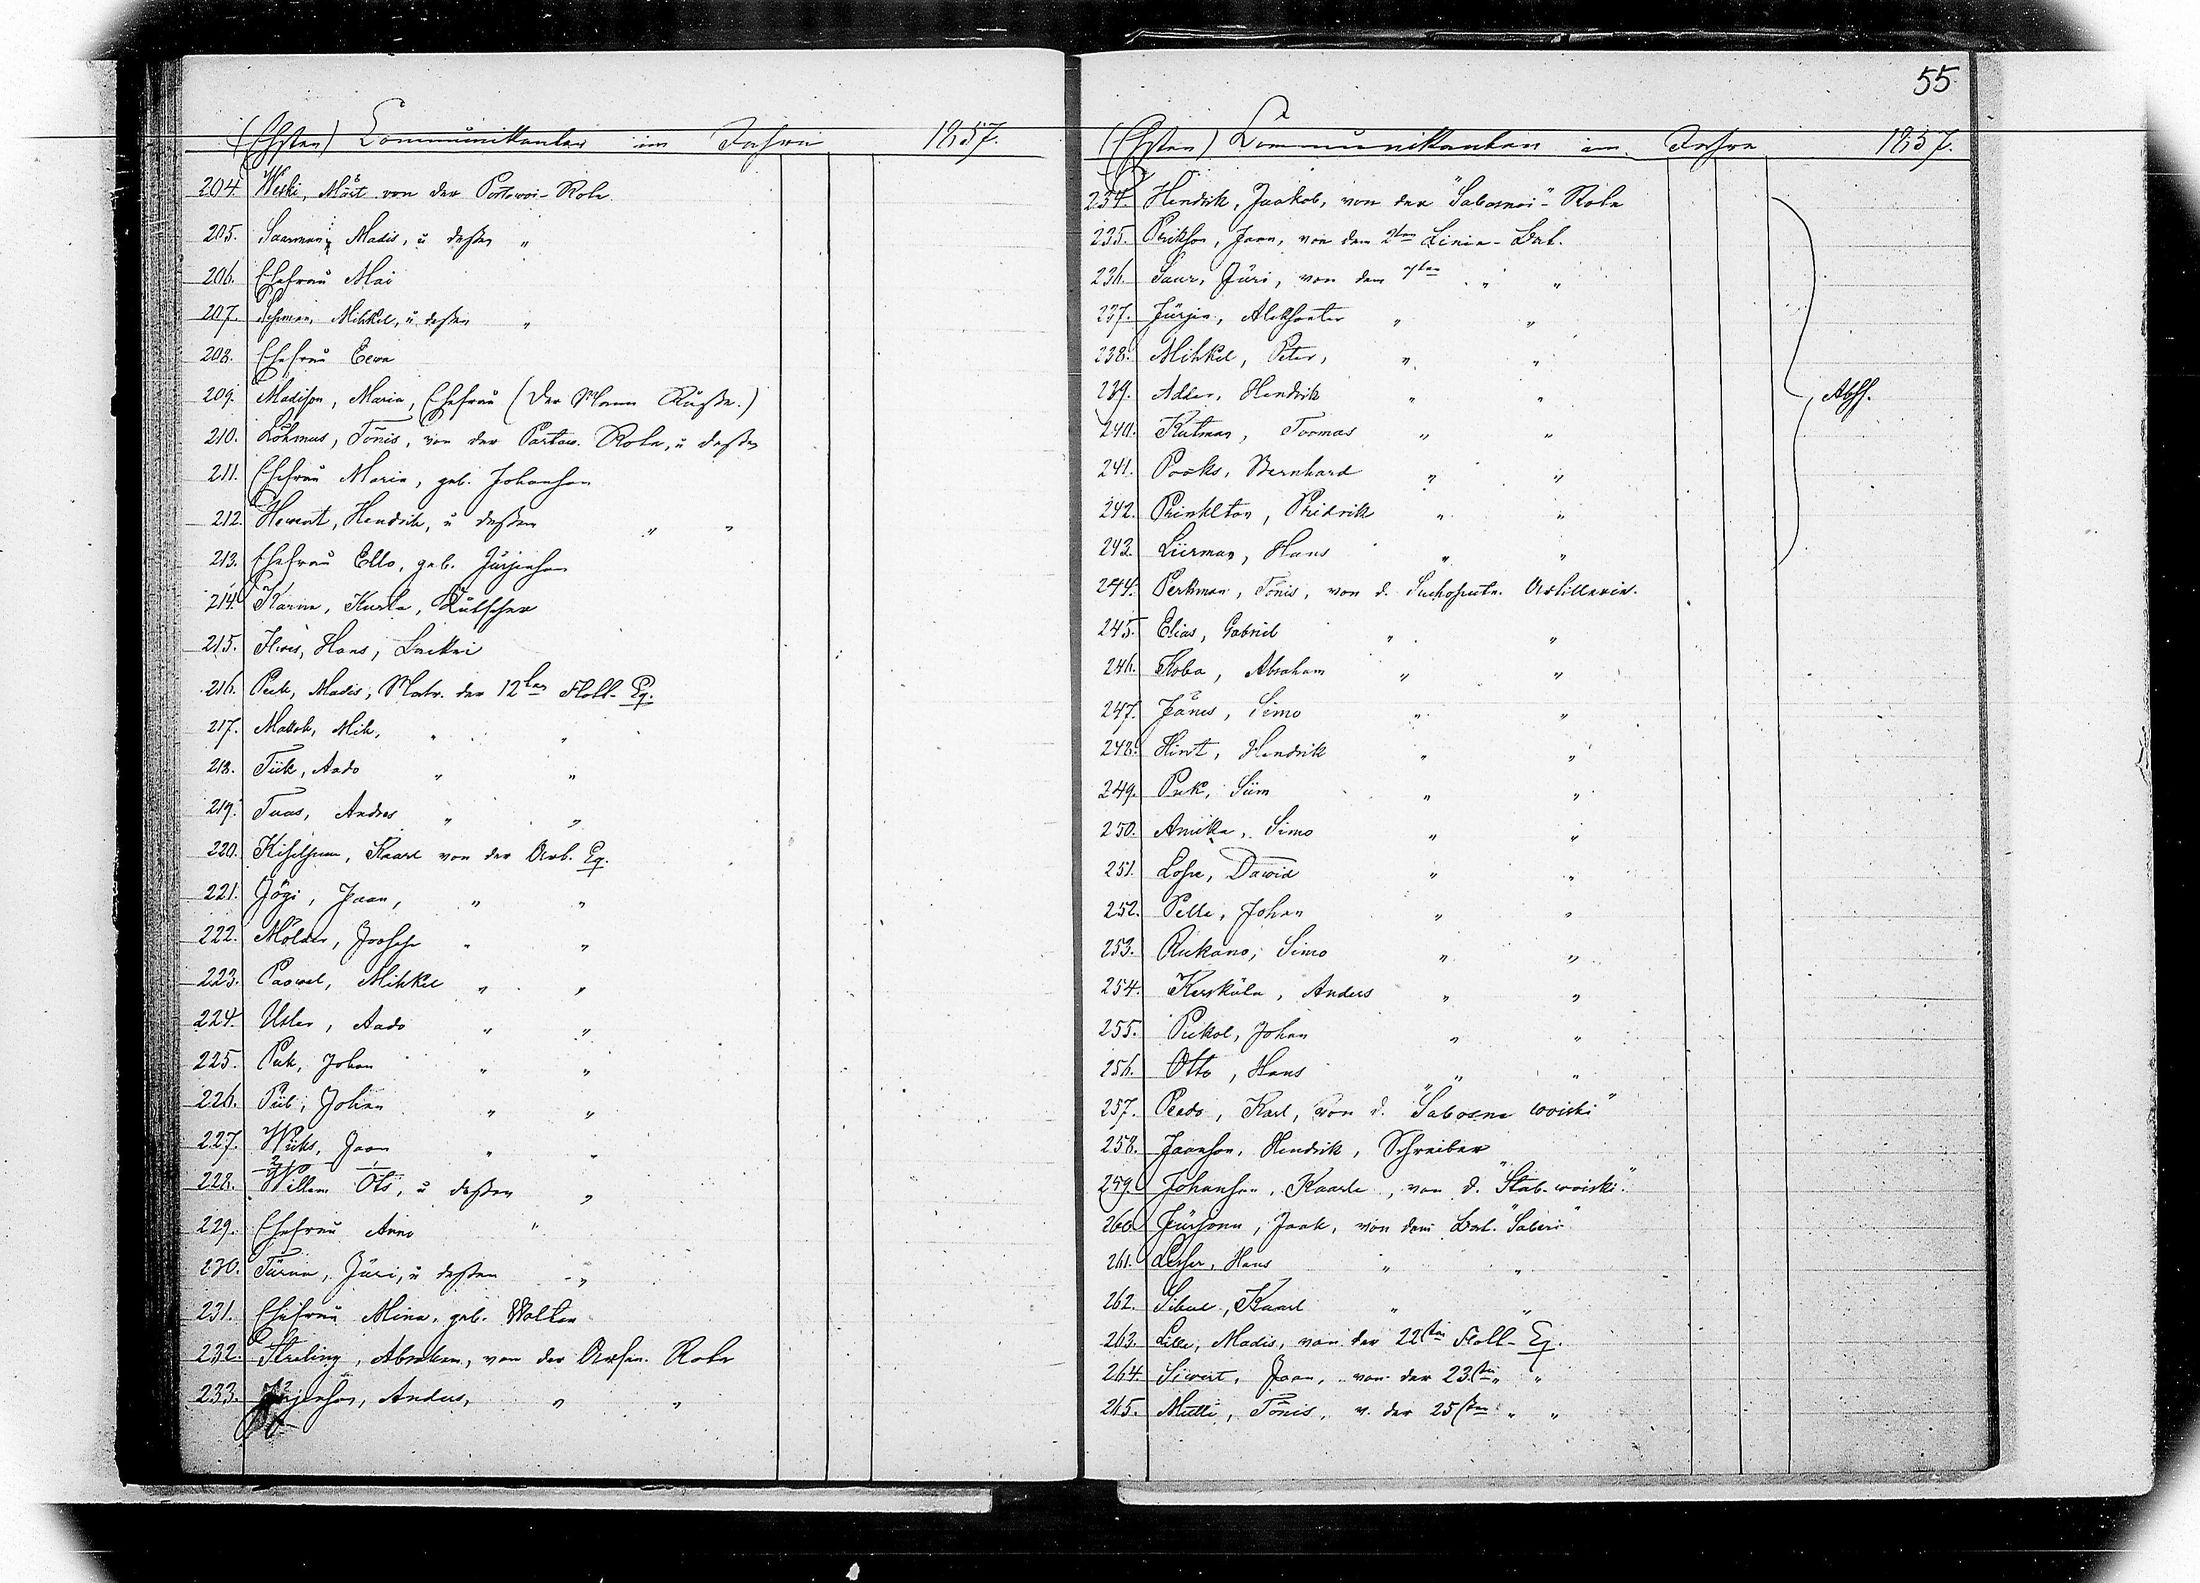 (Ehsten) Communikanten im Jahre 1857.
204. Weski, Märt von der Portowoi-Rote
205. Saarman, Madis, u dessen "
206. Ehefrau Mai
207. Mihkel, u dessen "
208. Ehefrau Eewa
209. Madison, Marie, Ehefrau (der Mann Russe.)
210. Lõhmus, Tõnis, von der Portow. Rote, u dessen
211. Ehefrau Marie, geb. Johanson
212. Hendrik, u dessen " "
213. Ehefrau Ello, geb. Jürjenson
214. Karla, Kutscher
215. Ilwes, Hans, Lackei
216. Peek, Madis, Matr. der 12ten Flott-Eq.
217. Mih, " "
218. Tiik, Aado " "
219. Tuas, Andres " "
220. Kaarl von der Arb. Eq.
221. Jõgi, Jaan, " "
222. Mölder, Joosep " "
223. Paowel, Mihkel " "
224. Aado " "
225. Puk, Johan " "
226. Piib, Johan " "
227. Wiiks, Jaan " "
228. Willem Ots, u dessen "
229. Ehefrau Anno "
230. Türna, Jüri, u dessen "
231. Ehefrau Mina, geb. Wolter
232. Streling, Abraham, von der Arsen. Rote
233. Jürjenson, Andus, " "
55
(Ehsten) Communikanten im Jahre 1857.
234. Hendrik, Jaakob, von der "Labornoi"-Rote
235. Jaan, von dem 2ten Linie-Bat.
236. Saar, Jüri, von dem 7ten " "
237. Jürjen, Aleksanter " "
238. Mihkel, Peter, " "
239. Adder, Hendrik " " Absch.
240. Kutman, Toomas " "
241. Pooks, Bernhard " "
242. Prinklton, Pridrik " "
243. Liirman, Hans " "
244. Perkman, Tõnis, von d. Suchoput. Artillerie.
245. Elias, Gabriel " "
246. Koba, Abraham " "
247. Jänes, Simo " "
248. Hint, Hendrik " "
249. Puk, Siim " "
250. Amika, Simo " "
251. Dawid " "
252. Pelle, Johan " "
253. Rukano, Simo " "
254. Kersküla, Anders " "
255. Pukol, Johan " "
256. Otto, Hans " "
257. Peedo, Karl, von d. "Laborne woiski"
258. Jaanson, Hendrik, Schreiber
259. Johanson, Kaarle, von d. "Stab-woiski".
260. Jürsonn, Jaak, von dem Bat. "Saleri"
261. Lesser, Hans " "
262. Sibul, Kaarl " "
263. Lille, Madis, von der 22sten Flott-Eq.
264. Siwert, Jaan, von der 23sten " "
265. Mutli, Tõnis, v. der 25sten " "